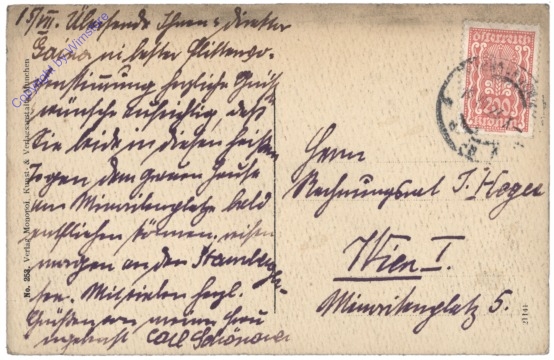 15/VII. Übersende Ihnen u. Direktor
in bester Flitterwo-
chenstimmung herzliche Glück-
wünsche aufrichtig, daß
Sie beide in diesen heißen
Tagen dem grauen Hause
am Minoritenplatz bald
entfliehen können. reisen
morgen an den Starnberger-
see. Mit vielen herzl.
Grüßen von meiner Frau
ergebenst Carl
Herrn
Rechnungsrat J. Hoger
Wien I.
Minoritenplatz 5.
No. 253. Verlag Monopol, Kunst- & Verlagsanstalt, München
Copyright by Wimstore
österreich
200
Kronen